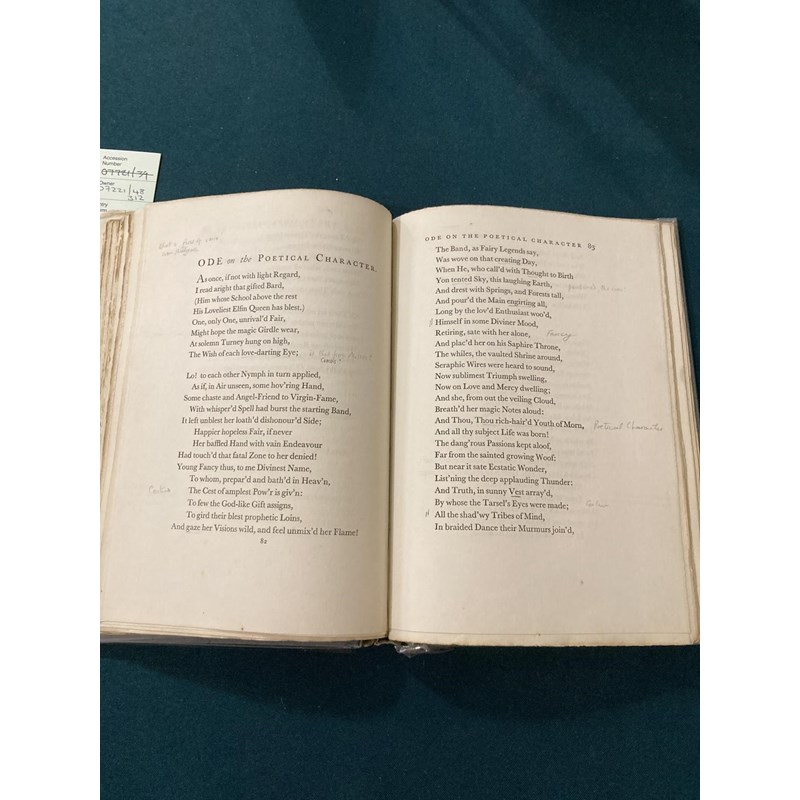 Accession
Number
07761/34
Owner
07221/48
312
ODE on the POETICAL CHARACTER.
As once, if not with light Regard,
I read aright that gifted Bard,
(Him whose School above the rest
His Loveliest Elfin Queen has blest.)
One, only One, unrival'd Fair,
Might hope the magic Girdle wear,
At solemn Turney hung on high,
The Wish of each love-darting Eye;
Lo! to each other Nymph in turn applied,
As if, in Air unseen, some hov'ring Hand,
Some chaste and Angel-Friend to Virgin-Fame,
With whisper'd Spell had burst the starting Band,
It left unblest her loath'd dishonour'd Side;
Happier hopeless Fair, if never
Her baffled Hand with vain Endeavour
Had touch'd that fatal Zone to her denied!
Young Fancy thus, to me Divinest Name,
To whom, prepar'd and bath'd in Heav'n,
The Cest of amplest Pow'r is giv'n:
To few the God-like Gift assigns,
To gird their blest prophetic Loins,
And gaze her Visions wild, and feel unmix'd her Flame!
82
ODE ON THE POETICAL CHARACTER 85
The Band, as Fairy Legends say,
Was wove on that creating Day,
When He, who call'd with Thought to Birth
Yon tented Sky, this laughing Earth,
And drest with Springs, and Forests tall,
And pour'd the Main engirting all,
Long by the lov'd Enthusiast woo'd,
Himself in some Diviner Mood,
Retiring, sate with her alone, Fancy
And plac'd her on his Saphire Throne,
The whiles, the vaulted Shrine around,
Seraphic Wires were heard to sound,
Now sublimest Triumph swelling,
Now on Love and Mercy dwelling;
And she, from out the veiling Cloud,
Breath'd her magic Notes aloud:
And Thou, Thou rich-hair'd Youth of Morn, Poetical Character
And all thy subject Life was born!
The dang'rous Passions kept aloof,
Far from the sainted growing Woof:
But near it sate Ecstatic Wonder,
List'ning the deep applauding Thunder:
And Truth, in sunny Vest array'd,
By whose the Tarsel's Eyes were made;
All the shad'wy Tribes of Mind,
In braided Dance their Murmurs join'd,